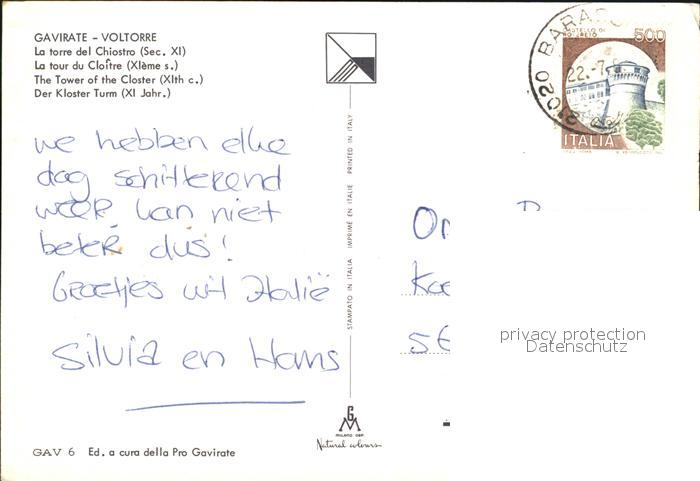 GAVIRATE - VOLTORRE
La torre del Chiostro (Sec. XI)
La tour du Cloître (XIème s.)
The Tower of the Closter (XIth c.)
Der Kloster Turm (XI Jahr.)
we hebben elke
dag schitterend
weer kan niet
beter dus!
Groetjes uit Italië
Silvia en Hans
GAV 6 Ed. a cura della Pro Gavirate
STAMPATO IN ITALIA IMPRIMÉ EN ITALIE PRINTED IN ITALY
GM
MILANO DEP.
Natural colours
500
ITALIA
21020 BARA
22.-7
Ko
56
privacy protection
Datenschutz